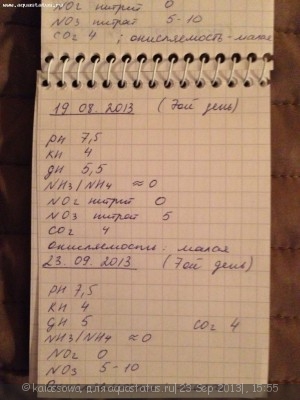 www.aquastatus.ru
NO2 нитрит 0
NO3 нитрат 5-10
CO2 4 ; окисляемость-малая
19.08.2013 (7ой день)
PH 7,5
KH 4
gH 5,5
NH3/NH4 ≈0
NO2 нитрит 0
NO3 нитрат 5
CO2 4
Окисляемость: малая
23.09.2013 (7ой день)
PH 7,5
KH 4
gH 5 CO2 4
NH3/NH4 ≈0
NO2 0
NO3 5-10
© kolossowa, aquastatus.ru| 23 Sep 2013|, 15:55